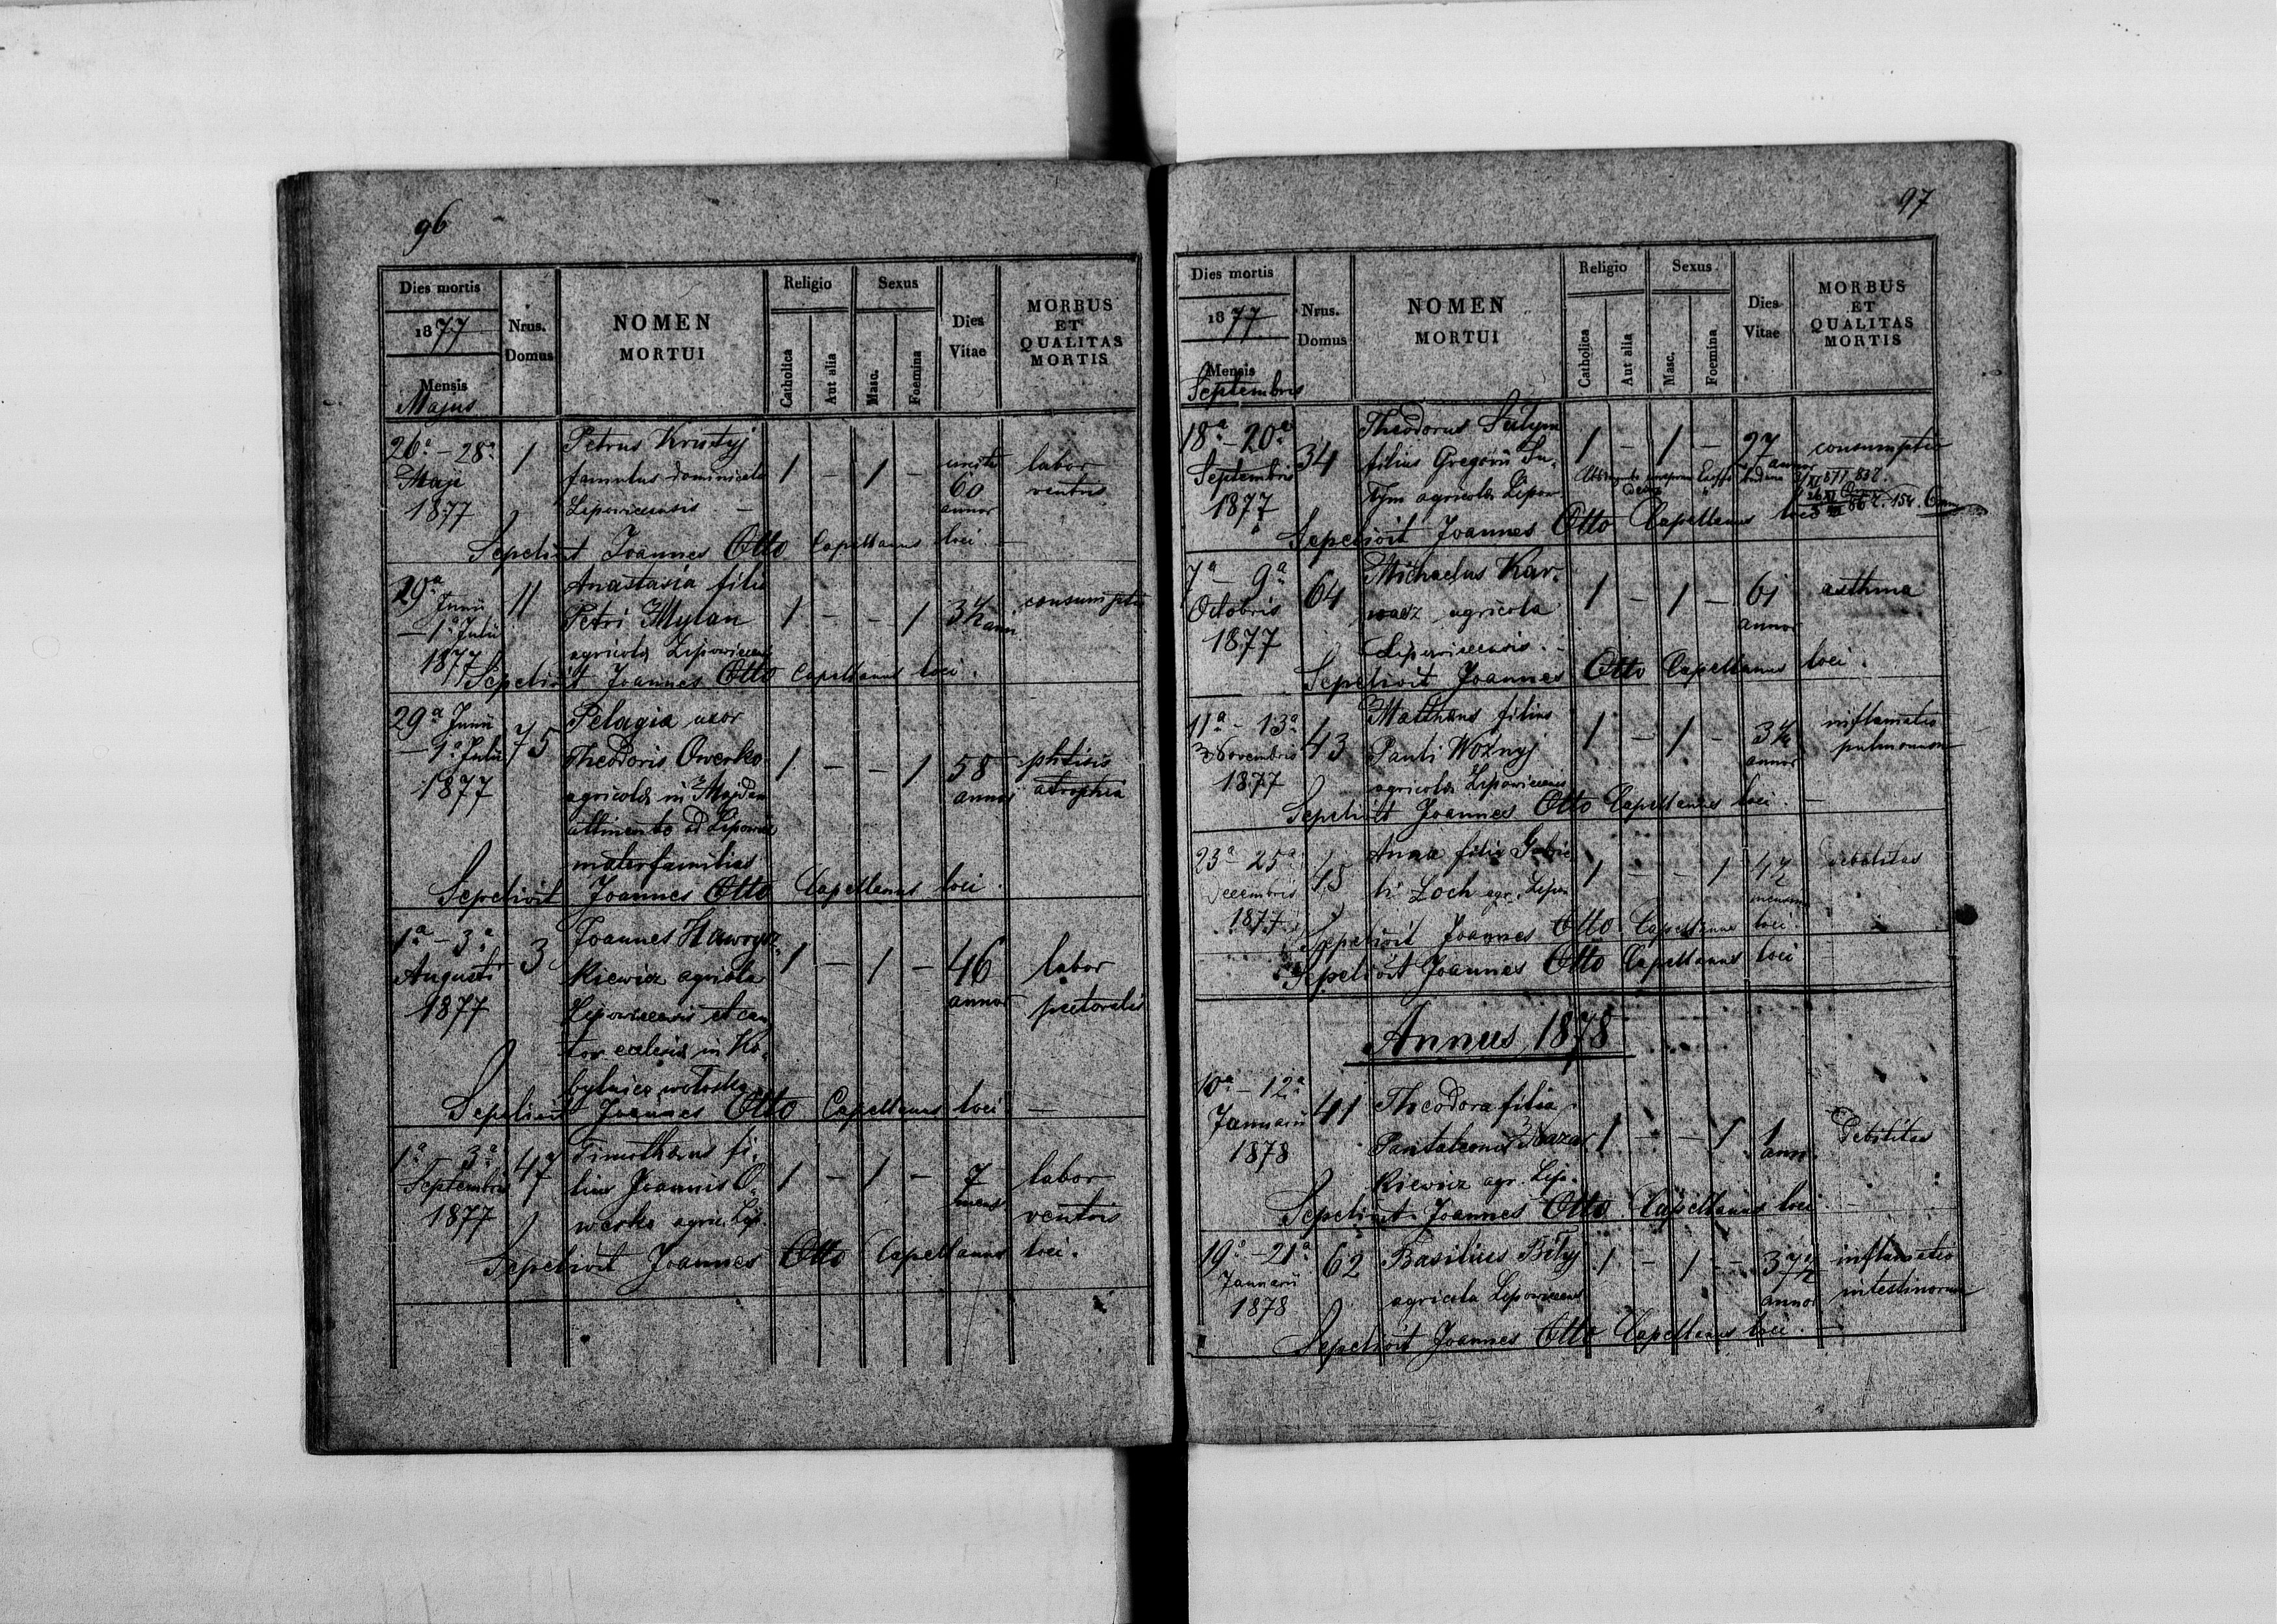 96
Dies mortis
1877
Mensis
Majus
Nrus.
Domus
NOMEN
MORTUI
Religio
Catholica
Aut alia
Sexus
Masc.
Foemina
Dies
Vitae
MORBUS
ET
QUALITAS
MORTIS
26a – 28a
Maji
1877
1
Petrus Krustyj
famulus dominicalis
Lipowicensis. –
1 – 1 –
60
annor
labor
ventris
Sepelivit Joannes Otto Capellanus loci. –
29a Junii
– 1a Julii
1877
11
Anastasia filia
Petri Mylan
agricolae
1 – – 1
3½ ann
consumptio
Sepelivit Joannes Otto Capellanus loci.
29a Junii
– 1a Julii
1877
75
Pelagia uxor
Theodoris Owerko
agricolae in Majdan
ad Lipowice
materfamilias
1 – – 1
58
annor
phtisis
atrophia
Sepelivit Joannes Otto Capellanus loci.
1a – 3a
Augusti
1877
3
Joannes Hawrysz-
kiewicz agricola
Lipowicensis et can
tor eclesiae in Ko-
bylnica wołoska
1 – 1 –
46
annor
labor
pectoralis
Sepelivit Joannes Otto Capellanus loci –
1a – 3a
Septembris
1877
47
Timotheus fi-
lius Joannis O-
werko agric. Lip.
1 – 1 –
7
mens
labor
ventris
Sepelivit Joannes Otto Capellanus loci.
97
Dies mortis
1877
Mensis
Septembris
Nrus.
Domus
NOMEN
MORTUI
Religio
Catholica
Aut alia
Sexus
Masc.
Foemina
Dies
Vitae
MORBUS
ET
QUALITAS
MORTIS
18a – 20a
Septembris
1877
34
Theodorus Sutym
filius Gregorii Su-
tym agricolae Lipow.
1 – 1 –
27
annor
consumptio
Sepelivit Joannes Otto Capellanus loci
7a – 9a
Octobris
1877
64
Michaelus Kar-
wacz agricola
Lipowicensis. –
1 – 1 –
61
annor
asthma
Sepelivit Joannes Otto Capellanus loci.
11a – 13a
Novembris
1877
43
Mattheus filius
Pauli Woźnyj
agricolae
1 – 1 –
3½
annor
inflamatio
pulmonum
Sepelivit Joannes Otto Capellanus loci. –
23a – 25a
Decembris
1877
45
Anna filia Gabrie
li Loch agr. Lipow
1 – – 1
4½
mensium
debilitas
Sepelivit Joannes Otto Capellanus loci.
Sepelivit Joannes Otto Capellanus loci
Annus 1878
10a – 12a
Januarii
1878
41
Theodora filia
Pantaleonis Nazar
kiewicz agr. Lipo.
1 – – 1
1
ann.
Debilitas
Sepelivit Joannes Otto Capellanus loci. –
19a – 21a
Januarii
1878
62
Basilius Biłyj
agricola Lipowicensis
1 – 1 –
37½
annor
inflamatio
intestinorum
Sepelivit Joannes Otto Capellanus loci. –